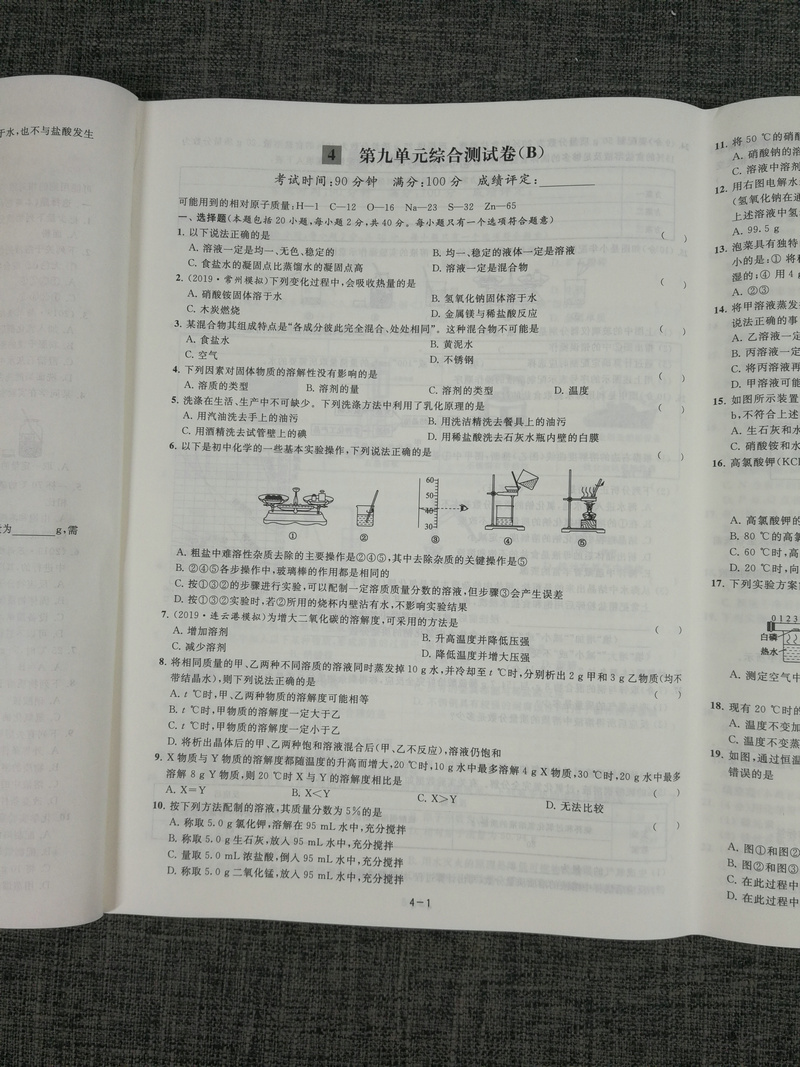 于水,也不与盐酸发生
为______g,需
4 第九单元综合测试卷(B)
考试时间:90分钟 满分:100分 成绩评定:______
可能用到的相对原子质量:H—1 C—12 O—16 Na—23 S—32 Zn—65
一、选择题(本题包括20小题,每小题2分,共40分。每小题只有一个选项符合题意)
1. 以下说法正确的是 ( )
A. 溶液一定是均一、无色、稳定的 B. 均一、稳定的液体一定是溶液
C. 食盐水的凝固点比蒸馏水的凝固点高 D. 溶液一定是混合物
2. (2019·常州模拟)下列变化过程中,会吸收热量的是 ( )
A. 硝酸铵固体溶于水 B. 氢氧化钠固体溶于水
C. 木炭燃烧 D. 金属镁与稀盐酸反应
3. 某混合物其组成特点是“各成分彼此完全混合、处处相同”。这种混合物不可能是 ( )
A. 食盐水 B. 黄泥水
C. 空气 D. 不锈钢
4. 下列因素对固体物质的溶解性没有影响的是 ( )
A. 溶质的类型 B. 溶剂的量 C. 溶剂的类型 D. 温度
5. 洗涤在生活、生产中不可缺少。下列洗涤方法中利用了乳化原理的是 ( )
A. 用汽油洗去手上的油污 B. 用洗洁精洗去餐具上的油污
C. 用酒精洗去试管壁上的碘 D. 用稀盐酸洗去石灰水瓶内壁的白膜
6. 以下是初中化学的一些基本实验操作,下列说法正确的是 ( )
60
50
40
30
① ② ③ ④ ⑤
A. 粗盐中难溶性杂质去除的主要操作是②④⑤,其中去除杂质的关键操作是⑤
B. ②④⑤各步操作中,玻璃棒的作用都是相同的
C. 按①③②的步骤进行实验,可以配制一定溶质质量分数的溶液,但步骤③会产生误差
D. 按①③②实验时,若②所用的烧杯内壁沾有水,不影响实验结果
7. (2019·连云港模拟)为增大二氧化碳的溶解度,可采用的方法是 ( )
A. 增加溶剂 B. 升高温度并降低压强
C. 减少溶剂 D. 降低温度并增大压强
8. 将相同质量的甲、乙两种不同溶质的溶液同时蒸发掉10 g水,并冷却至t ℃时,分别析出2 g甲和3 g乙物质(均不
带结晶水),则下列说法正确的是 ( )
A. t ℃时,甲、乙两种物质的溶解度可能相等
B. t ℃时,甲物质的溶解度一定大于乙
C. t ℃时,甲物质的溶解度一定小于乙
D. 将析出晶体后的甲、乙两种饱和溶液混合后(甲、乙不反应),溶液仍饱和
9. X物质与Y物质的溶解度都随温度的升高而增大,20 ℃时,10 g水中最多溶解4 g X物质,30 ℃时,20 g水中最多
溶解8 g Y物质,则20 ℃时X与Y的溶解度相比是 ( )
A. X=Y B. X<Y C. X>Y D. 无法比较
10. 按下列方法配制的溶液,其质量分数为5%的是 ( )
A. 称取5.0 g氯化钾,溶解在95 mL水中,充分搅拌
B. 称取5.0 g生石灰,放入95 mL水中,充分搅拌
C. 量取5.0 mL浓盐酸,倒入95 mL水中,充分搅拌
D. 称取5.0 g二氧化锰,放入95 mL水中,充分搅拌
4-1
11. 将50 ℃的硝酸
A. 硝酸钠的溶
C. 溶液中溶剂
12. 用右图电解水
(氢氧化钠在通
上述溶液中氢
A. 99.5 g
13. 泡菜具有独特
小的是:①将
湿的;④用4 g
A. ②③
14. 将甲溶液蒸发
说法正确的事
A. 乙溶液一定
B. 丙溶液一定
C. 将丙溶液再
D. 甲溶液可能
15. 如图所示装置
b,不符合上述
A. 生石灰和水
C. 硝酸铵和水
16. 高氯酸钾(KCl
A. 高氯酸钾的
B. 80 ℃的高氯
C. 60 ℃时,高
D. 20 ℃时,向
17. 下列实验方案
0 1 2 3
白磷
热水
A. 测定空气中
18. 现有20 ℃时的
A. 温度不变加
C. 温度不变蒸
19. 如图,通过恒温
错误的是
A. 图①和图②
B. 图②和图③
C. 在此过程中
D. 在此过程中